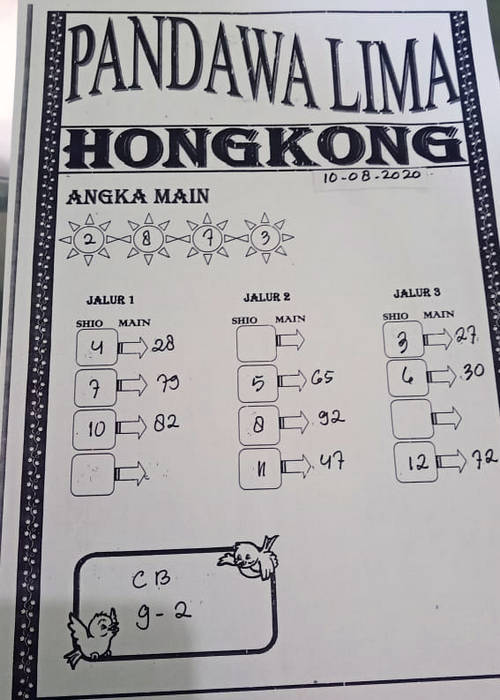 PANDAWA LIMA
HONGKONG
10-08-2020
ANGKA MAIN
2 8 7 3
JALUR 1 JALUR 2 JALUR 3
SHIO MAIN SHIO MAIN SHIO MAIN
4 28 3 27
7 79 5 65 6 30
10 82 8 92
11 47 12 72
CB
9-2